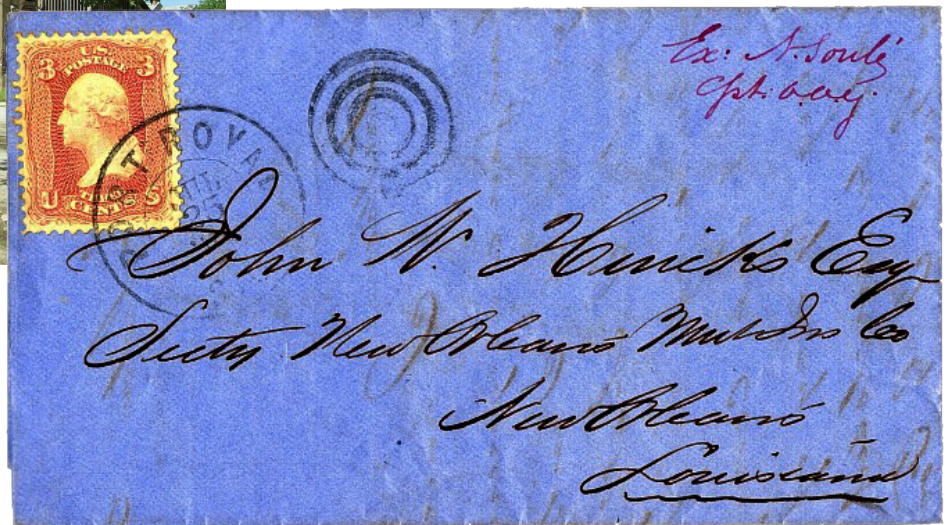 U.S.
POSTAGE
3 3
THREE
U CENTS S
PORT ROYAL
Ex: N. Soulé
John W. Hincks Esq
Secty New Orleans Mut Ins Co
New Orleans
Louisiana